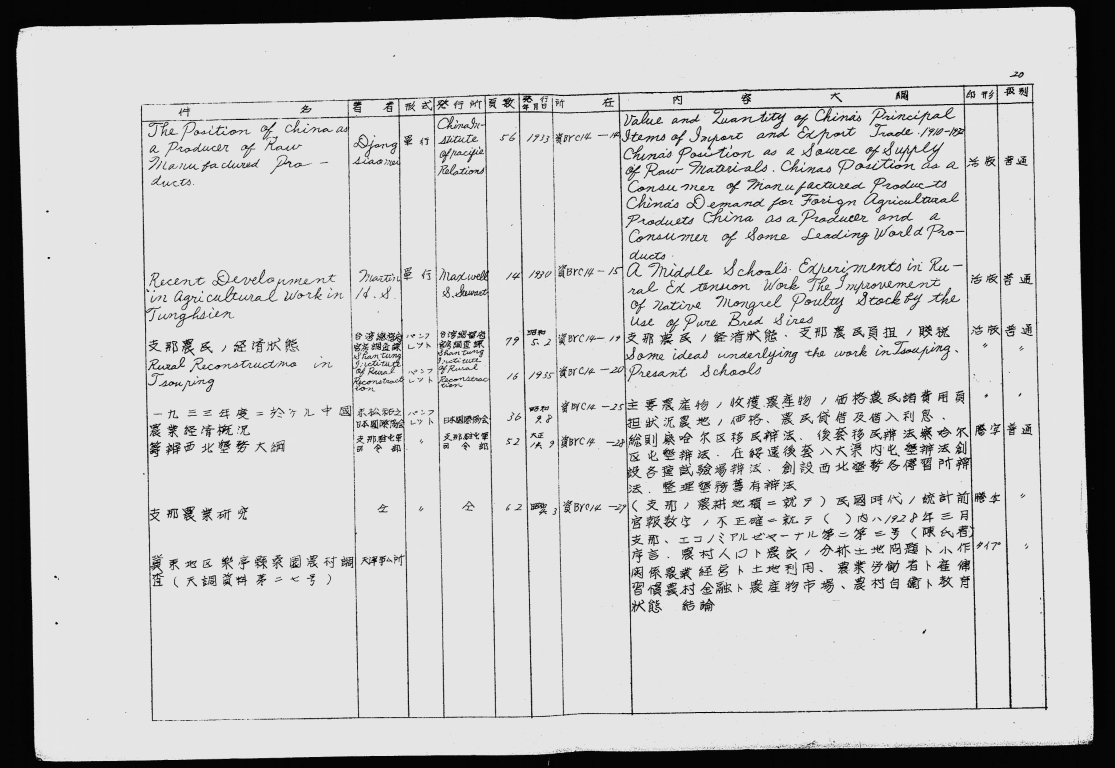 20
件 名 著者 形式 発行所 頁数 発行年月日 所在 内容大綱 印形 級別
The Position of China as
a Producer of Raw
Manufactured Pro-
ducts.
Djang
siaomei
單行
China In-
stitute
of pacific
Relations
56
1933
資BYC14
Value and Quantity of China's Principal
Items of Inport and Export Trade.
China's Position as a Source of Supply
of Raw Materials. Chinas Position as a
Consumer of Manufactured Products
China's Demand for Forign Agricultural
Products China as a Producer and a
Consumer of Some Leading World Pro-
ducts.
活版 普通
Recent Development
in Agricultural Work in
Tunghsien
Martin
H. S.
單行
14
1930
資BYC14-15
A Middle School's Experiments in Ru-
ral Extension Work The Improvement
Of Native Mongrel Poulty Stock by the
Use of Pure Bred Sires
活版 普通
支那農民ノ経済狀態
パンフ
レツト
79
昭和
5.2
資BYC14-19
支那農民ノ経済狀態、支那農民負担ノ賦税
活版 普通
Rural Reconstructmo in
Tsouping
Shantung
Institute
of Rural
Reconstruct
ion
パンフ
レツト
Shantung
Institute
of Rural
Reconstruc
tion
16
1935
資BYC14-20
Some ideas underlying the work in Tsouping.
Presant Schools
〃 〃
一九三三年度ニ於ケル中國
農業経済概況
日本國際協会
パンフ
レツト
日本國際協会
36
昭和
9.8
資BYC14-25
主要農産物ノ收獲農産物ノ価格農民諸費用負
担狀況農地ノ価格、農民貸借及借入利息、
〃 〃
籌辦西北墾務大綱
支那駐屯軍
司令部
〃
支那駐屯軍
司令部
52
資BYC14-28
総則察哈尔区移民辦法、後套移民辦法察哈尔
区屯墾辦法、在綏遠後套八大渠内屯墾辦法創
設各種試験場辦法、創設西北墾務各傳習所辦
法、整理墾務舊有辦法
謄写 普通
支那農業研究
仝
〃
仝
62
資BYC14-29
(支那ノ農耕地積ニ就テ)民國時代ノ統計前
官報数字ノ不正確ニ就テ( )内ハ1928年三月
支那、エコノミアルゼャーナル第二第三号(陳氏著)
謄写 〃
冀東地区樂亭縣桑園農村調
査(天調資料第二七号)
天津事ム所
序言、農村人口ト農家ノ分析土地問題ト小作
関係農業経営ト土地利用、農業労働者ト雇傭
習慣農村金融ト農産物市場、農村自衛ト教育
狀態 結論
タイプ 〃